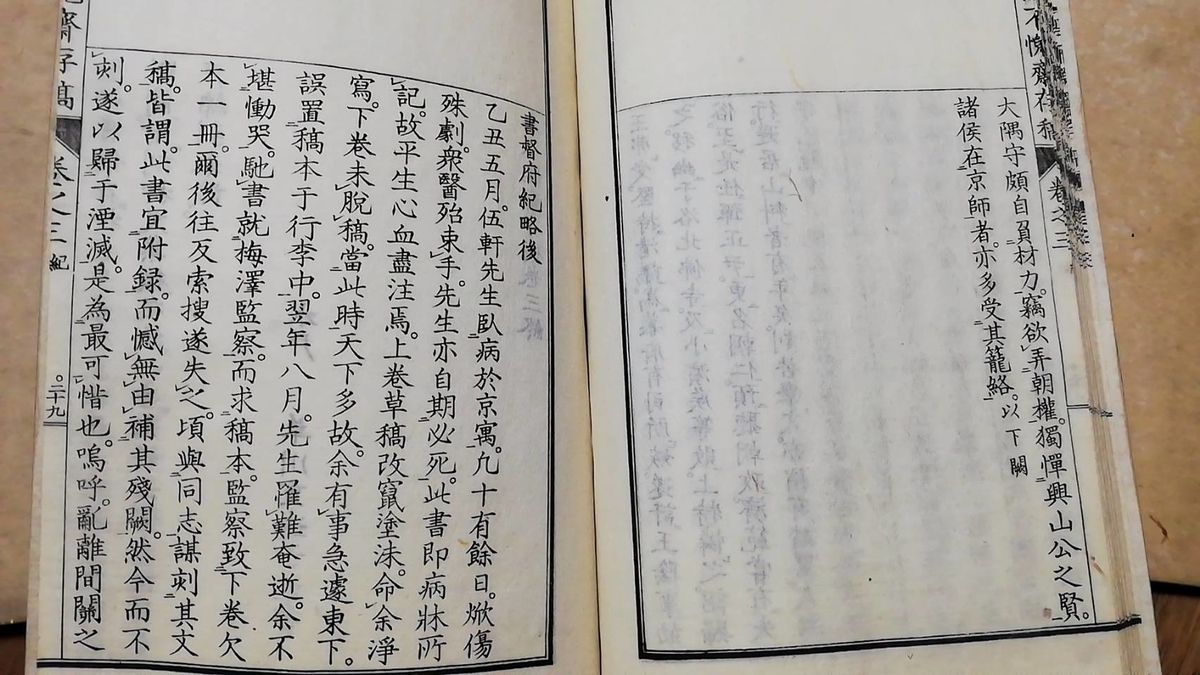 不慍齋存稿 卷之三
大隅守頗自負材力。竊欲弄朝權。獨憚興山公之賢。
諸侯在京師者。亦多受其籠絡。以下闕
書督府紀略後
乙丑五月。伍軒先生臥病於京寓。凢十有餘日。焮傷
殊劇。衆醫殆束手。先生亦自期必死。此書即病牀所
記。故平生心血盡注焉。上卷草稿改竄塗沫。命余淨
寫。下卷未脫稿。當此時天下多故。余有事急遽東下。
誤置稿本于行李中。翌年八月。先生罹難奄逝。余不
堪慟哭。馳書就梅澤監察。而求稿本。監察致下卷欠
本一冊。爾後往反索搜遂失之。頃與同志謀刻其文
稿。皆謂。此書宜附録。而憾無由補其殘闕。然今而不
刻。遂以歸于湮滅。是為最可惜也。嗚呼。亂離間關之
齋存稿 卷之三 紀 二十九